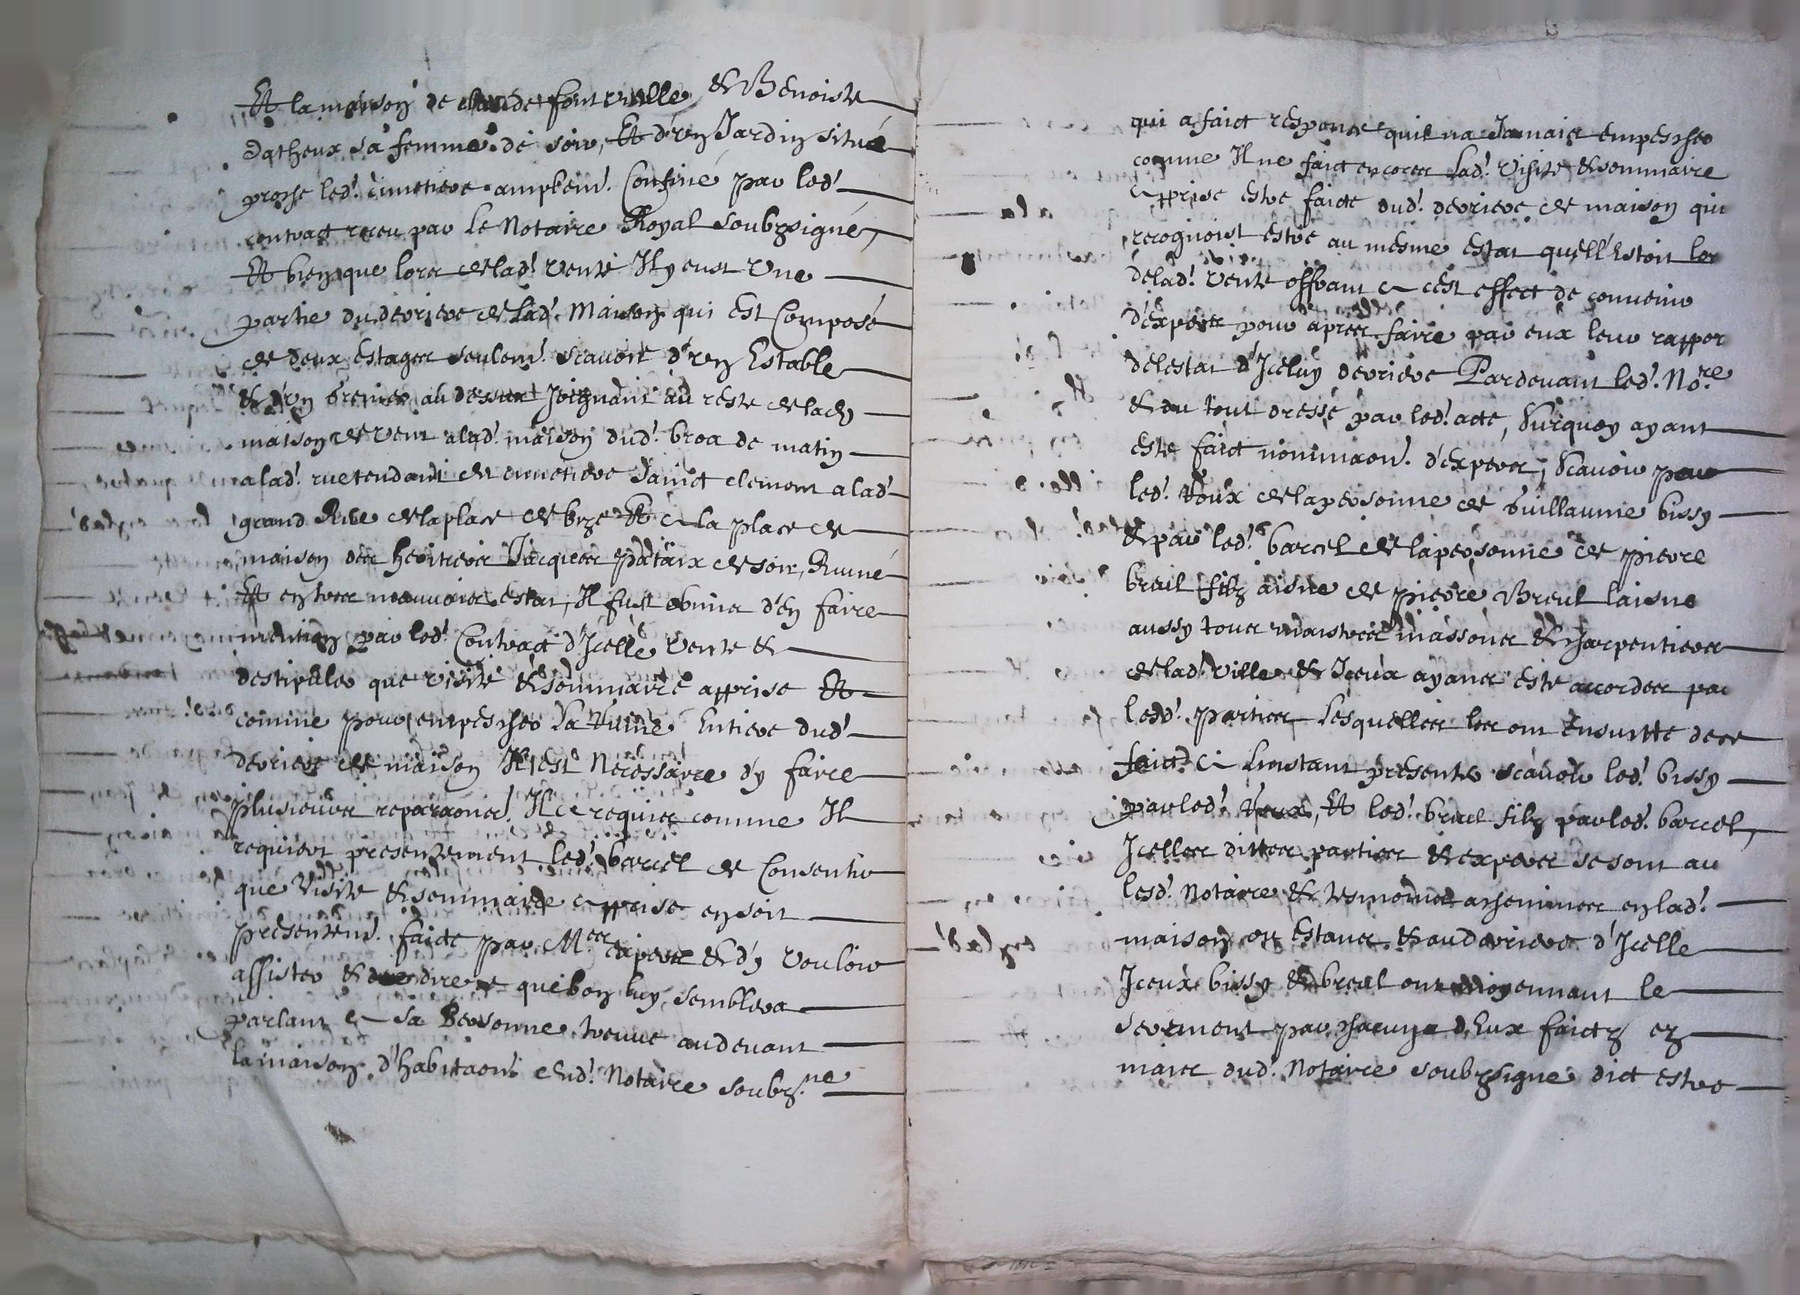 Et la maison de claude fontvielle & Benoiste
datheux sa femme de soir, Et d'un Jardin situé
proche led.t cimetiere amplem.t Confiné par led.t
contract receu par le Notaire Royal soubzsigné,
Et bien que lors de lad.t vente Il y eust une
partie du derriere de lad.t Maison qui est Composé
de deux estages seulem.t scavoir d'un Estable
& d'un grenier au dessus Joignant au reste de lad.
maison de vent a lad.t maison dud.t broa de matin
a lad.t rue tendant de cimetiere Sainct clement a lad.t
grand Rue de la place de & a la place de
maison des heritiers Jacques pataix de soir, Ruiné
Et en tres mauvais estat, Il fust obmis d'en faire
mention par led.t Contract d'Icelle vente &
destipuler que visite & sommaire apprise Et
comme pour empescher la Ruine Entiere dud.t
derriere de maison Il est Necessaire dy faire
plusieurs reparaons. Il a requis comme Il
requiert presentement led.t barcel de Consentir
que visite & sommaire apprise en soit
presentem.t faicte par M.es expers & d'y vouloir
assister & dire que bon luy semblera
parlant a sa Personne treuvé au devant
la maison d'habitaon dud.t Notaire soubz.ne
qui a faict responce quil na Jamais empesché
comme Il ne faict encores lad.t visite & sommaire
apprise estre faicte dud.t derriere de maison qui
recognoist estre au mesme estat quell'Estoit lors
de lad.t vente offrant a cest effect de convenir
d'expers pour apres faire par eux leur rappor
de lestat d'Iceluy derriere Pardevant led.t No.re
& du tout dressé par led.t acte, Surquoy ayant
esté faict nominaon. d'expers, Scavoir par
led.t Roux de la personne de Guillaume bissy
& par led.t barcel de la personne de pierre
breul filz aisne de pierre Breul laisne
aussy tous maistres massons & charpentiers
de lad.t ville & Iceux ayans esté accordes par
lesd.t parties Lesquelles les ont Ensuitte de ce
faict a Linstant presents scavoir led.t bissy
par led.t Roux, Et led.t breul filz par led.t barcel,
Icelles dittes parties & expers se sont au
lesd.t Notaire & tesmoins acheminer en lad.t
maison ou estans & au derriere d'Icelle
Iceux bissy & breul ont moyennant le
serement par chacung d'Eux faictz ez
mains dud.t Notaire soubzsigné dict estre